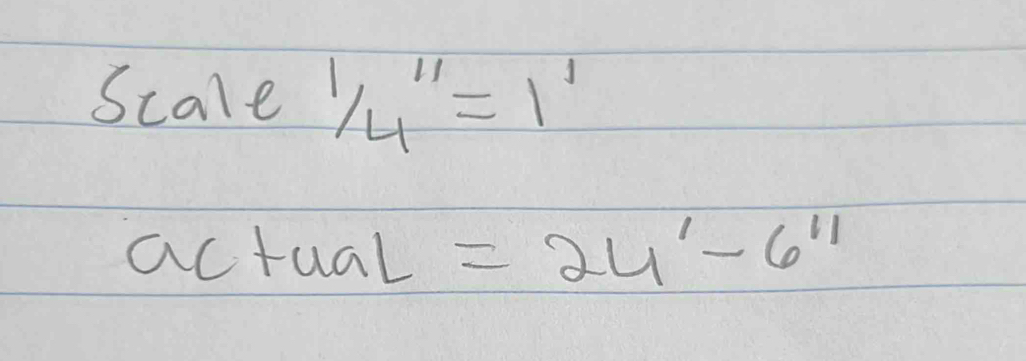 Scale 1/4" = 1'
actual = 24' - 6"